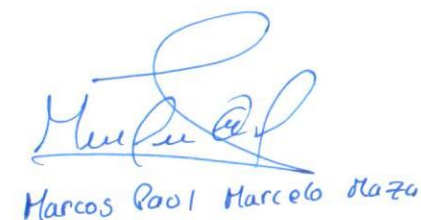 Marcos Paol Marcelo Maza